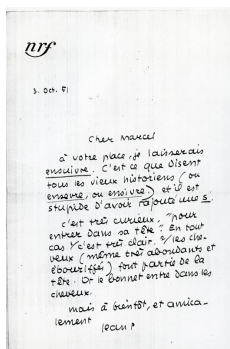 nrf
3. Oct. 51
Cher Marcel
à votre place, je laisserais
ensuivre. C'est ce que disent
tous les vieux historiens (ou
enseure, ou ensivre) et il est
stupide d'avoir rajouté une s.
c'est très curieux, "pour
entrer dans sa tête"? En tout
cas 1/c'est très clair. 2/les che-
veux (même très abondants et
ébouriffés) font partie de la
tête. Or le bonnet entre dans les
cheveux.
mais à bientôt, et amica-
lement
Jean P